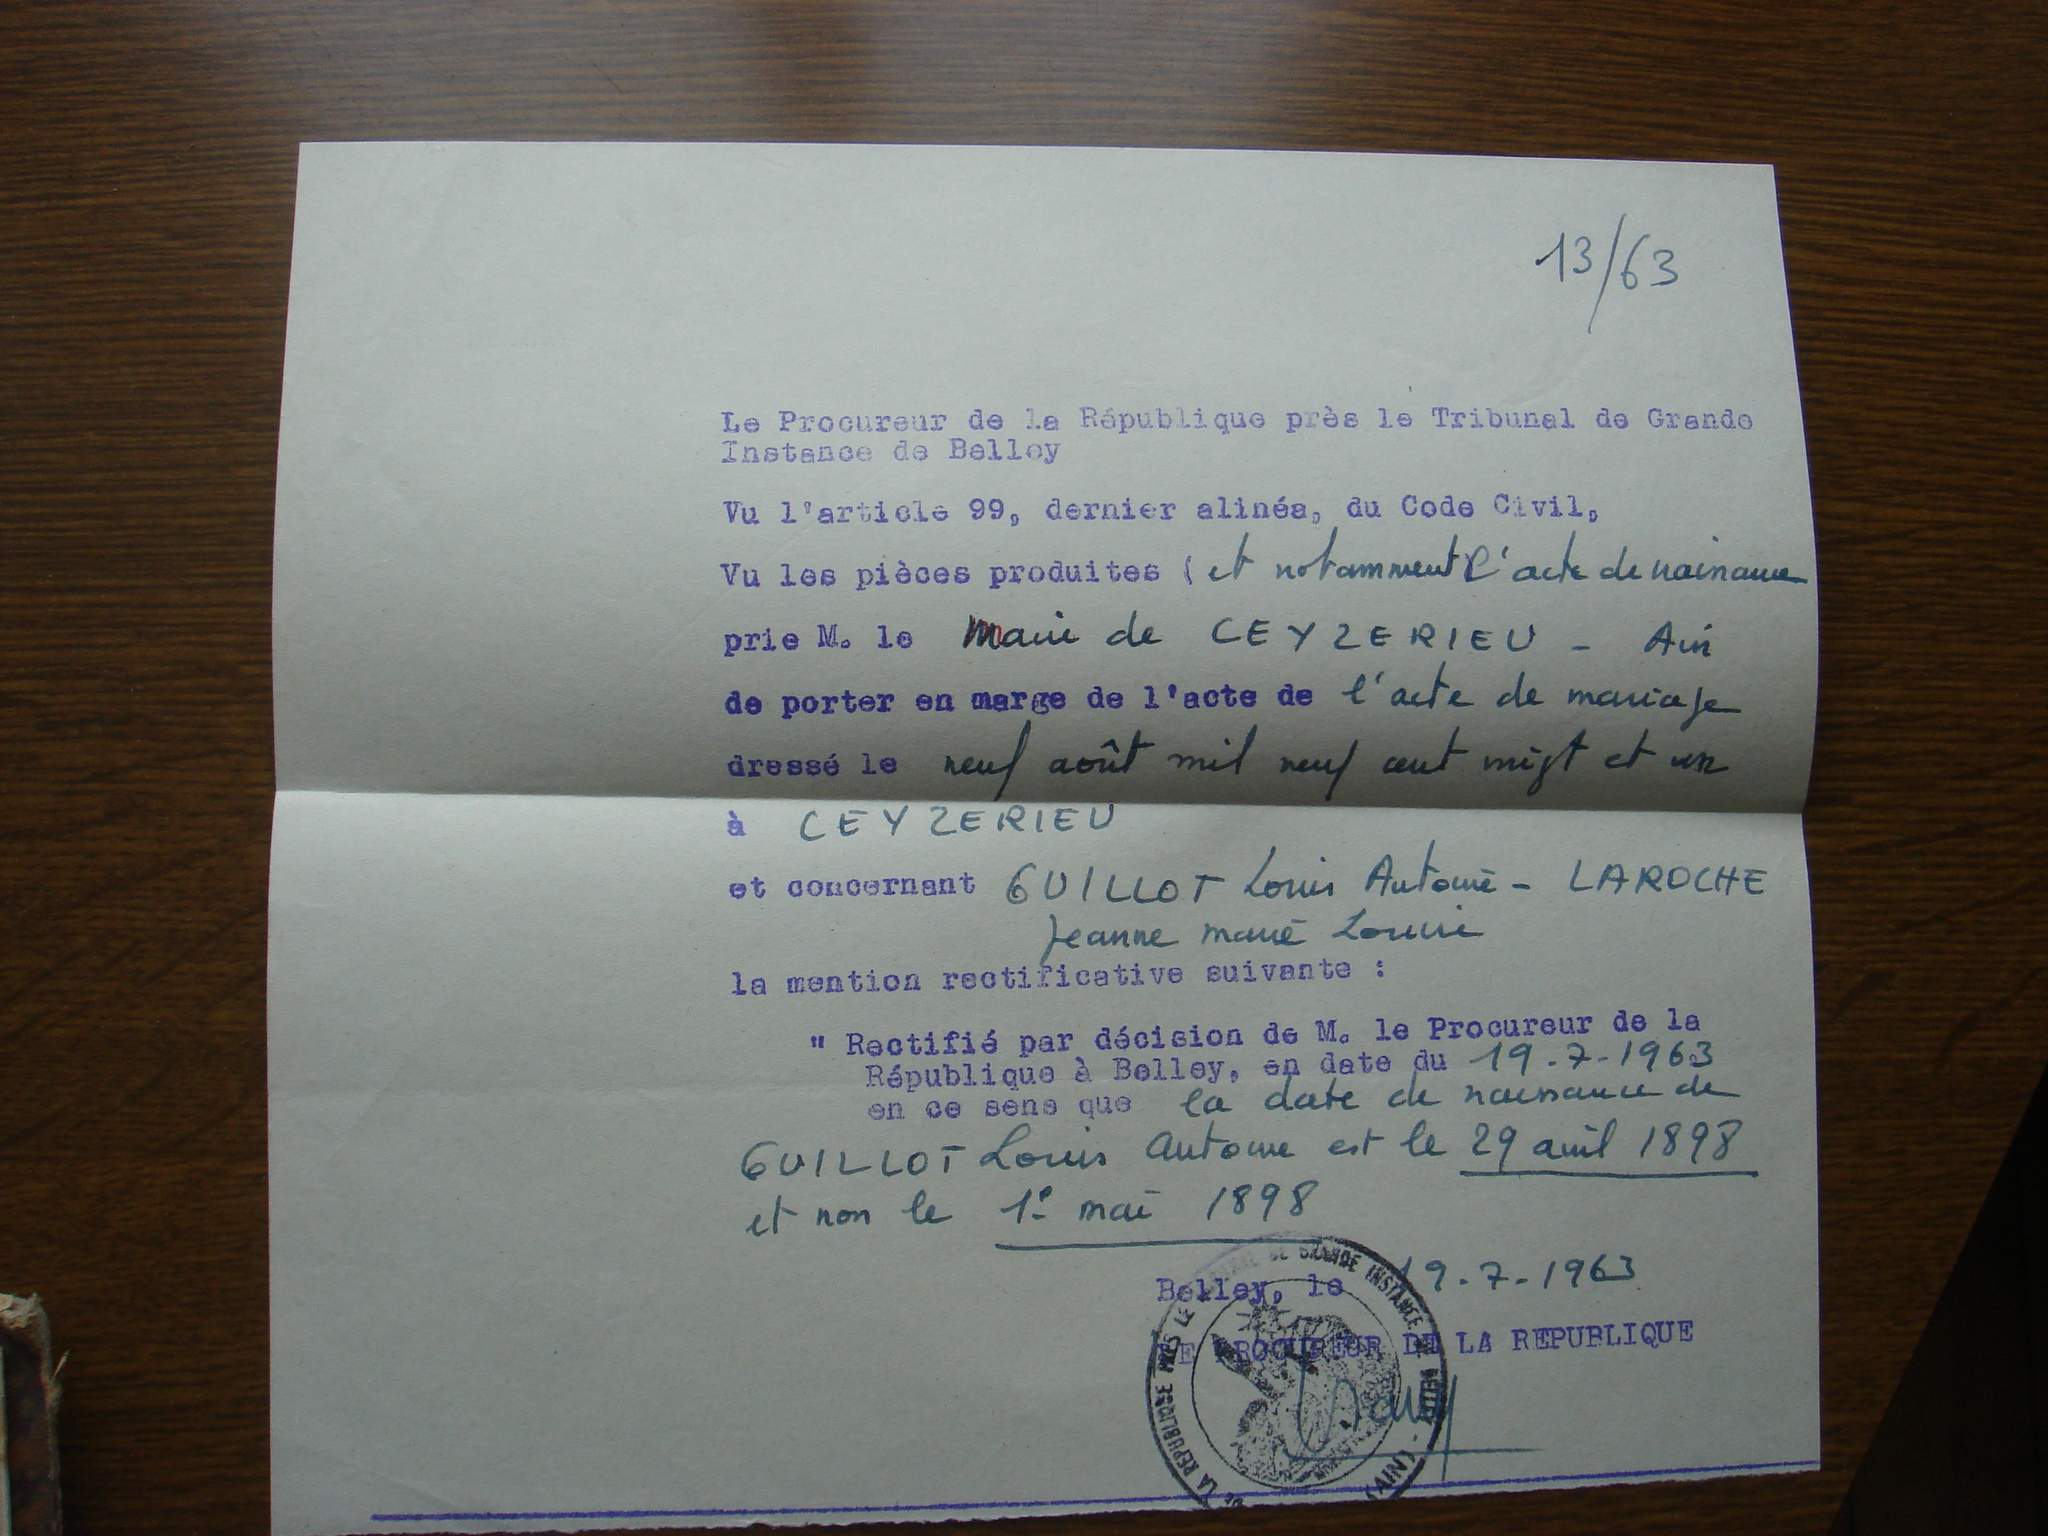 13/63
Le Procureur de la République près le Tribunal de Grande
Instance de Belley
Vu l'article 99, dernier alinéa, du Code Civil,
Vu les pièces produites ( et notamment l'acte de naissance
prie M. le Maire de CEYZERIEU - Ain
de porter en marge de l'acte de l'acte de mariage
dressé le neuf août mil neuf cent vingt et un
à CEYZERIEU
et concernant GUILLOT Louis Antoine - LAROCHE
Jeanne Marie Louise
la mention rectificative suivante :
" Rectifié par décision de M. le Procureur de la
République à Belley, en date du 19-7-1963
en ce sens que la date de naissance de
GUILLOT Louis Antoine est le 29 avril 1898
et non le 1e mai 1898
Belley, le 19-7-1963
LE PROCUREUR DE LA REPUBLIQUE
DE LA REPUBLIQUE PRES LE DE GRANDE INSTANCE DE BELLEY (AIN)